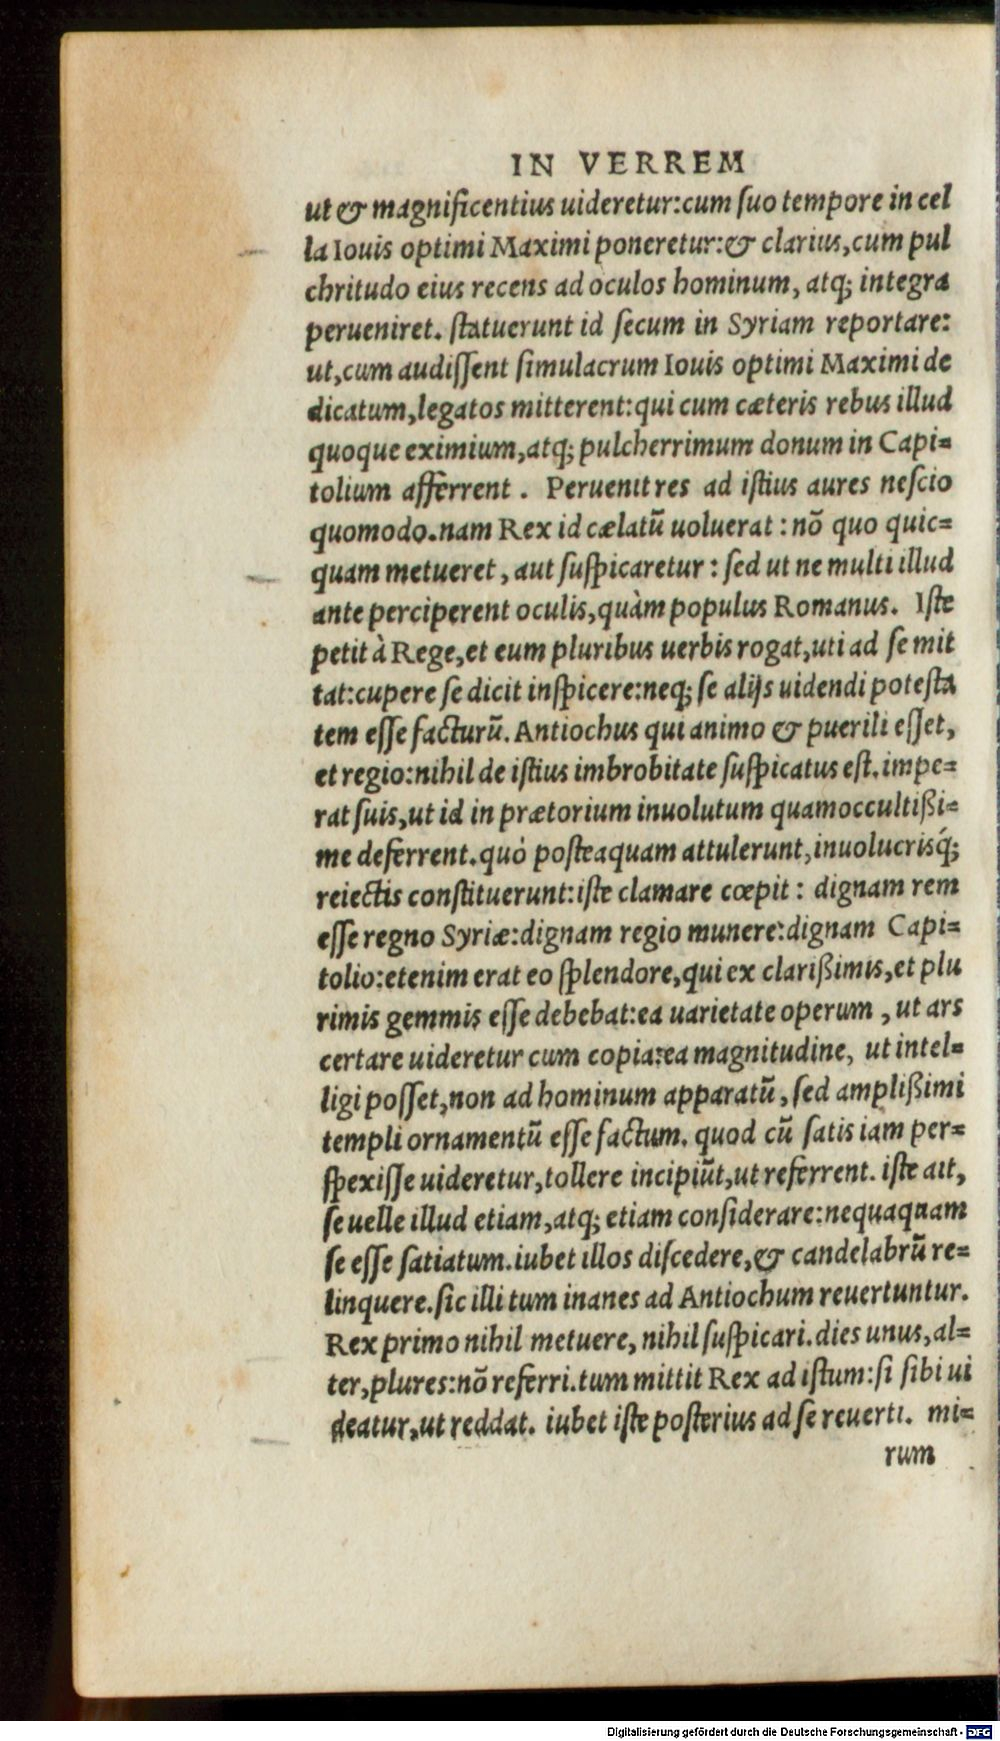 IN VERREM
ut & magnificentius uideretur:cum ſuo tempore in cel
la Iouis optimi Maximi poneretur:& clarius,cum pul
chritudo eius recens ad oculos hominum, atq; integra
perueniret. ſtatuerunt id ſecum in Syriam reportare:
ut,cum audiſſent ſimulacrum Iouis optimi Maximi de
dicatum,legatos mitterent:qui cum cæteris rebus illud
quoque eximium,atq; pulcherrimum donum in Capi=
tolium afferrent . Peruenit res ad iſtius aures neſcio
quomodo.nam Rex id cælatū uoluerat : nõ quo quic=
quam metueret, aut ſuſpicaretur : ſed ut ne multi illud
ante perciperent oculis,quàm populus Romanus. Iſte
petit à Rege,et eum pluribus uerbis rogat,uti ad ſe mit
tat:cupere ſe dicit inſpicere:neq; ſe alijs uidendi poteſta
tem eſſe facturū. Antiochus qui animo & puerili eſſet,
et regio:nihil de iſtius imbrobitate ſuſpicatus eſt.impe=
rat ſuis,ut id in prætorium inuolutum quamoccultißi=
me deferrent.quò poſteaquam attulerunt,inuolucrisq́;
reiectis conſtituerunt:iſte clamare cœpit : dignam rem
eſſe regno Syriæ:dignam regio munere:dignam Capi=
tolio:etenim erat eo ſplendore,qui ex clarißimis,et plu
rimis gemmis eſſe debebat:ea uarietate operum , ut ars
certare uideretur cum copia:ea magnitudine, ut intel=
ligi poſſet,non ad hominum apparatū, ſed amplißimi
templi ornamentū eſſe factum. quod cū ſatis iam per=
ſpexiſſe uideretur,tollere incipiūt,ut referrent. iſte ait,
ſe uelle illud etiam,atq; etiam conſiderare:nequaquam
ſe eſſe ſatiatum.iubet illos diſcedere,& candelabrū re=
linquere.ſic illi tum inanes ad Antiochum reuertuntur.
Rex primo nihil metuere, nihil ſuſpicari.dies unus,al=
ter,plures:nõ referri.tum mittit Rex ad iſtum:ſi ſibi ui
deatur,ut reddat. iubet iſte poſterius ad ſe reuerti. mi=
rum
Digitalisierung gefördert durch die Deutsche Forschungsgemeinschaft - DFG